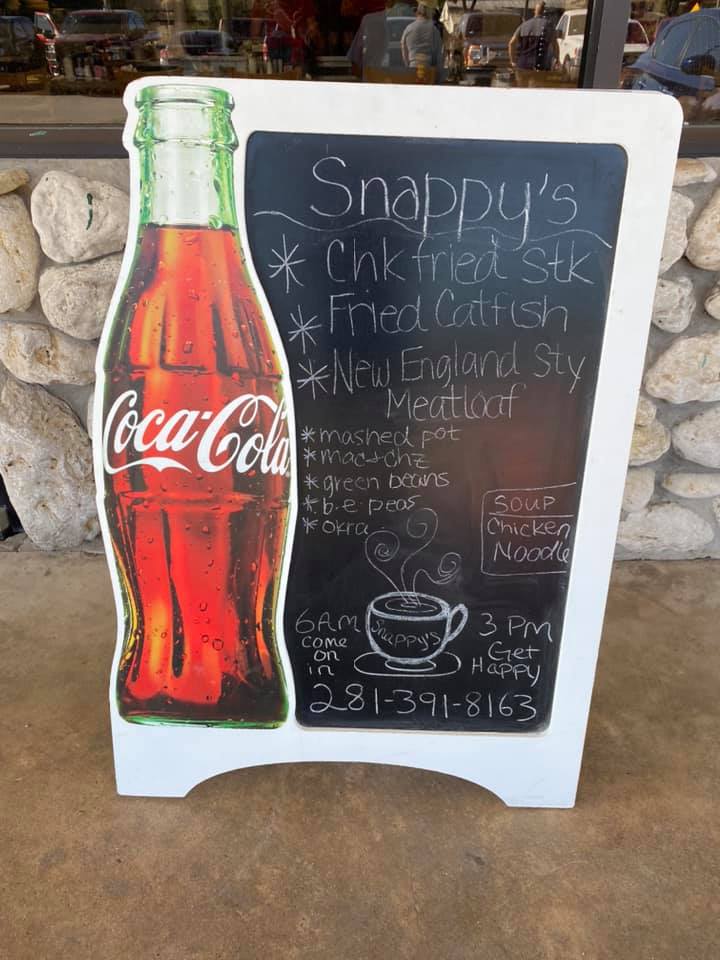 Snappy's
* Chk fried stk
* Fried Catfish
* New England Sty
Meatloaf
* mashed pot
* mac + chz
* green beans
* b.e. peas
* okra
SOUP
Chicken
Noodle
Coca-Cola
Snappy's
6AM
come
on
in
3 PM
Get
Happy
281-391-8163